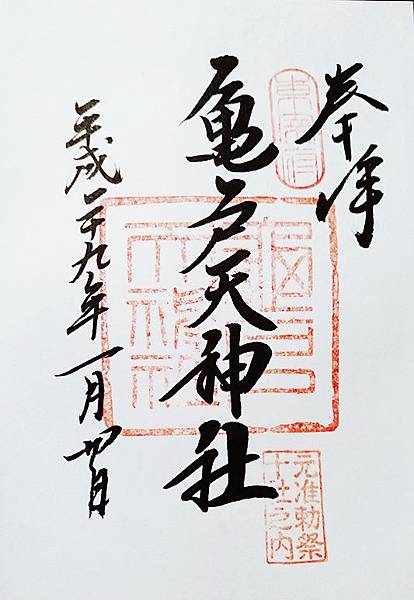 奉拝
東宰府
亀戸天神社
元准勅祭
十社之内
平成二十九年一月四日